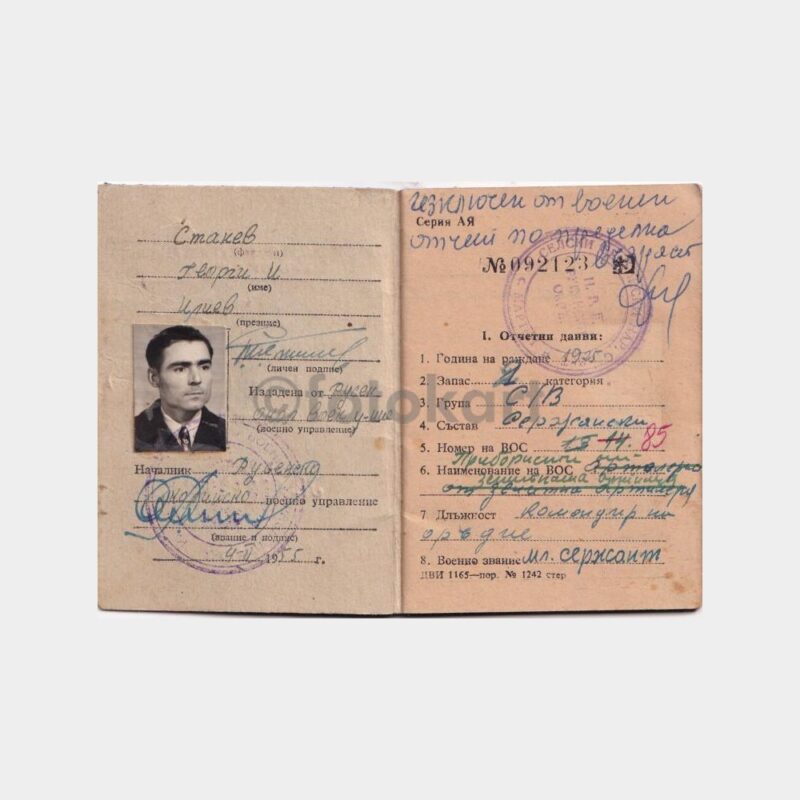 Станев
(фамилия)
Георги И
(име)
Илиев
(презиме)
(личен подпис)
Издадена от Русен
(военно управление)
Началник Русенско
военно управление
(звание и подпис)
1955 г.
изключен от военен
Серия АЯ
отчет по пределна
възраст
№ 092123
I. Отчетни данни:
1. Година на раждане 1925
2. Запас II категория
3. Група С/В
4. Състав Сержантски
5. Номер на ВОС 15 14. 85
6. Наименование на ВОС
зенитната
от зенитна артилерия
7. Длъжност Командир на
оръдие
8. Военно звание мл. сержант
ДВИ 1165—пор. № 1242 стер
©fotokart